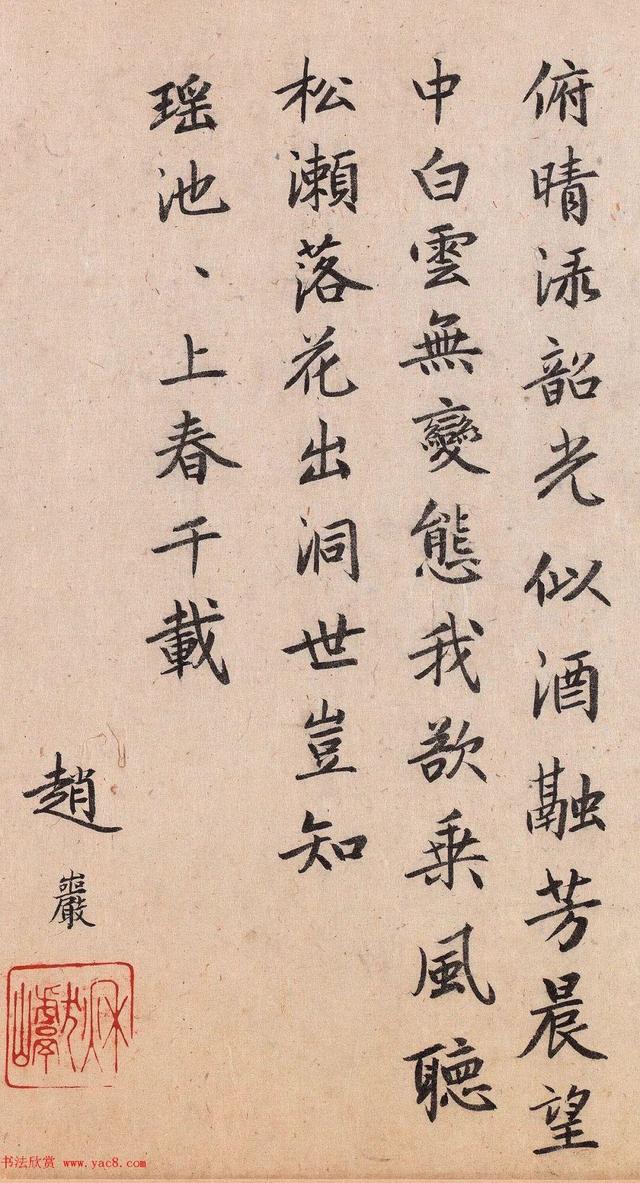 俯晴渌韶光似酒融芳晨望
中白雲無變態我欲乗風聽
松瀬落花出洞世豈知
瑶池、上春千載
趙巖
书法欣赏 www.yac8.com